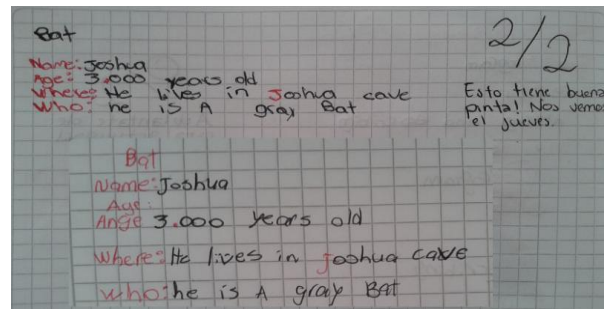 Bat
2/2
Name: Joshua
Age: 3.000 years old
Where: He lives in Joshua cave
Who: he is A gray Bat
Esto tiene buena
pinta! Nos vemos
el jueves.
Bat
Name: Joshua
Age:
Ange 3.000 years old
Where: He lives in Joshua cave
who: he is A gray Bat